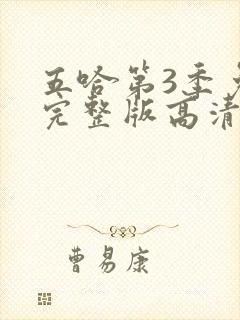 五哈第3季
完整版高清
曹易康